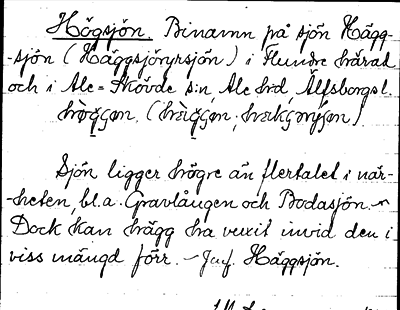 Högsjön. Binamn på sjön Hägg-
-sjön (Häggsjöryrsjön) i Flundre härad
och i Ale-Skövde s:n, Ale hrd, Älfsborgs l.
Sjön ligger högre än flertalet i när-
-heten, bl.a. Gravlången och Bodasjön. ~
Dock kan hägg ha vuxit invid den i
viss mängd förr. ~ Jmf. Häggsjön.